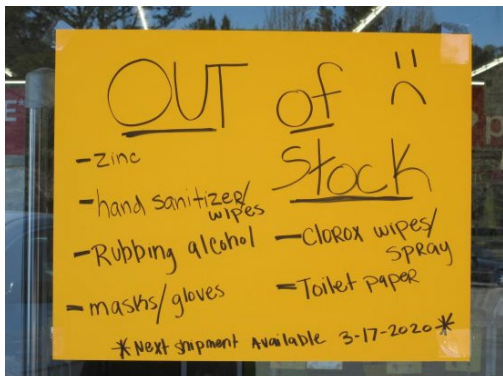 OUT of :(
Stock
-zinc
-hand sanitizer/
wipes
-Rubbing alcohol
-masks/gloves
-Clorox wipes/
SPRAY
-Toilet paper
*Next shipment Available 3-17-2020*